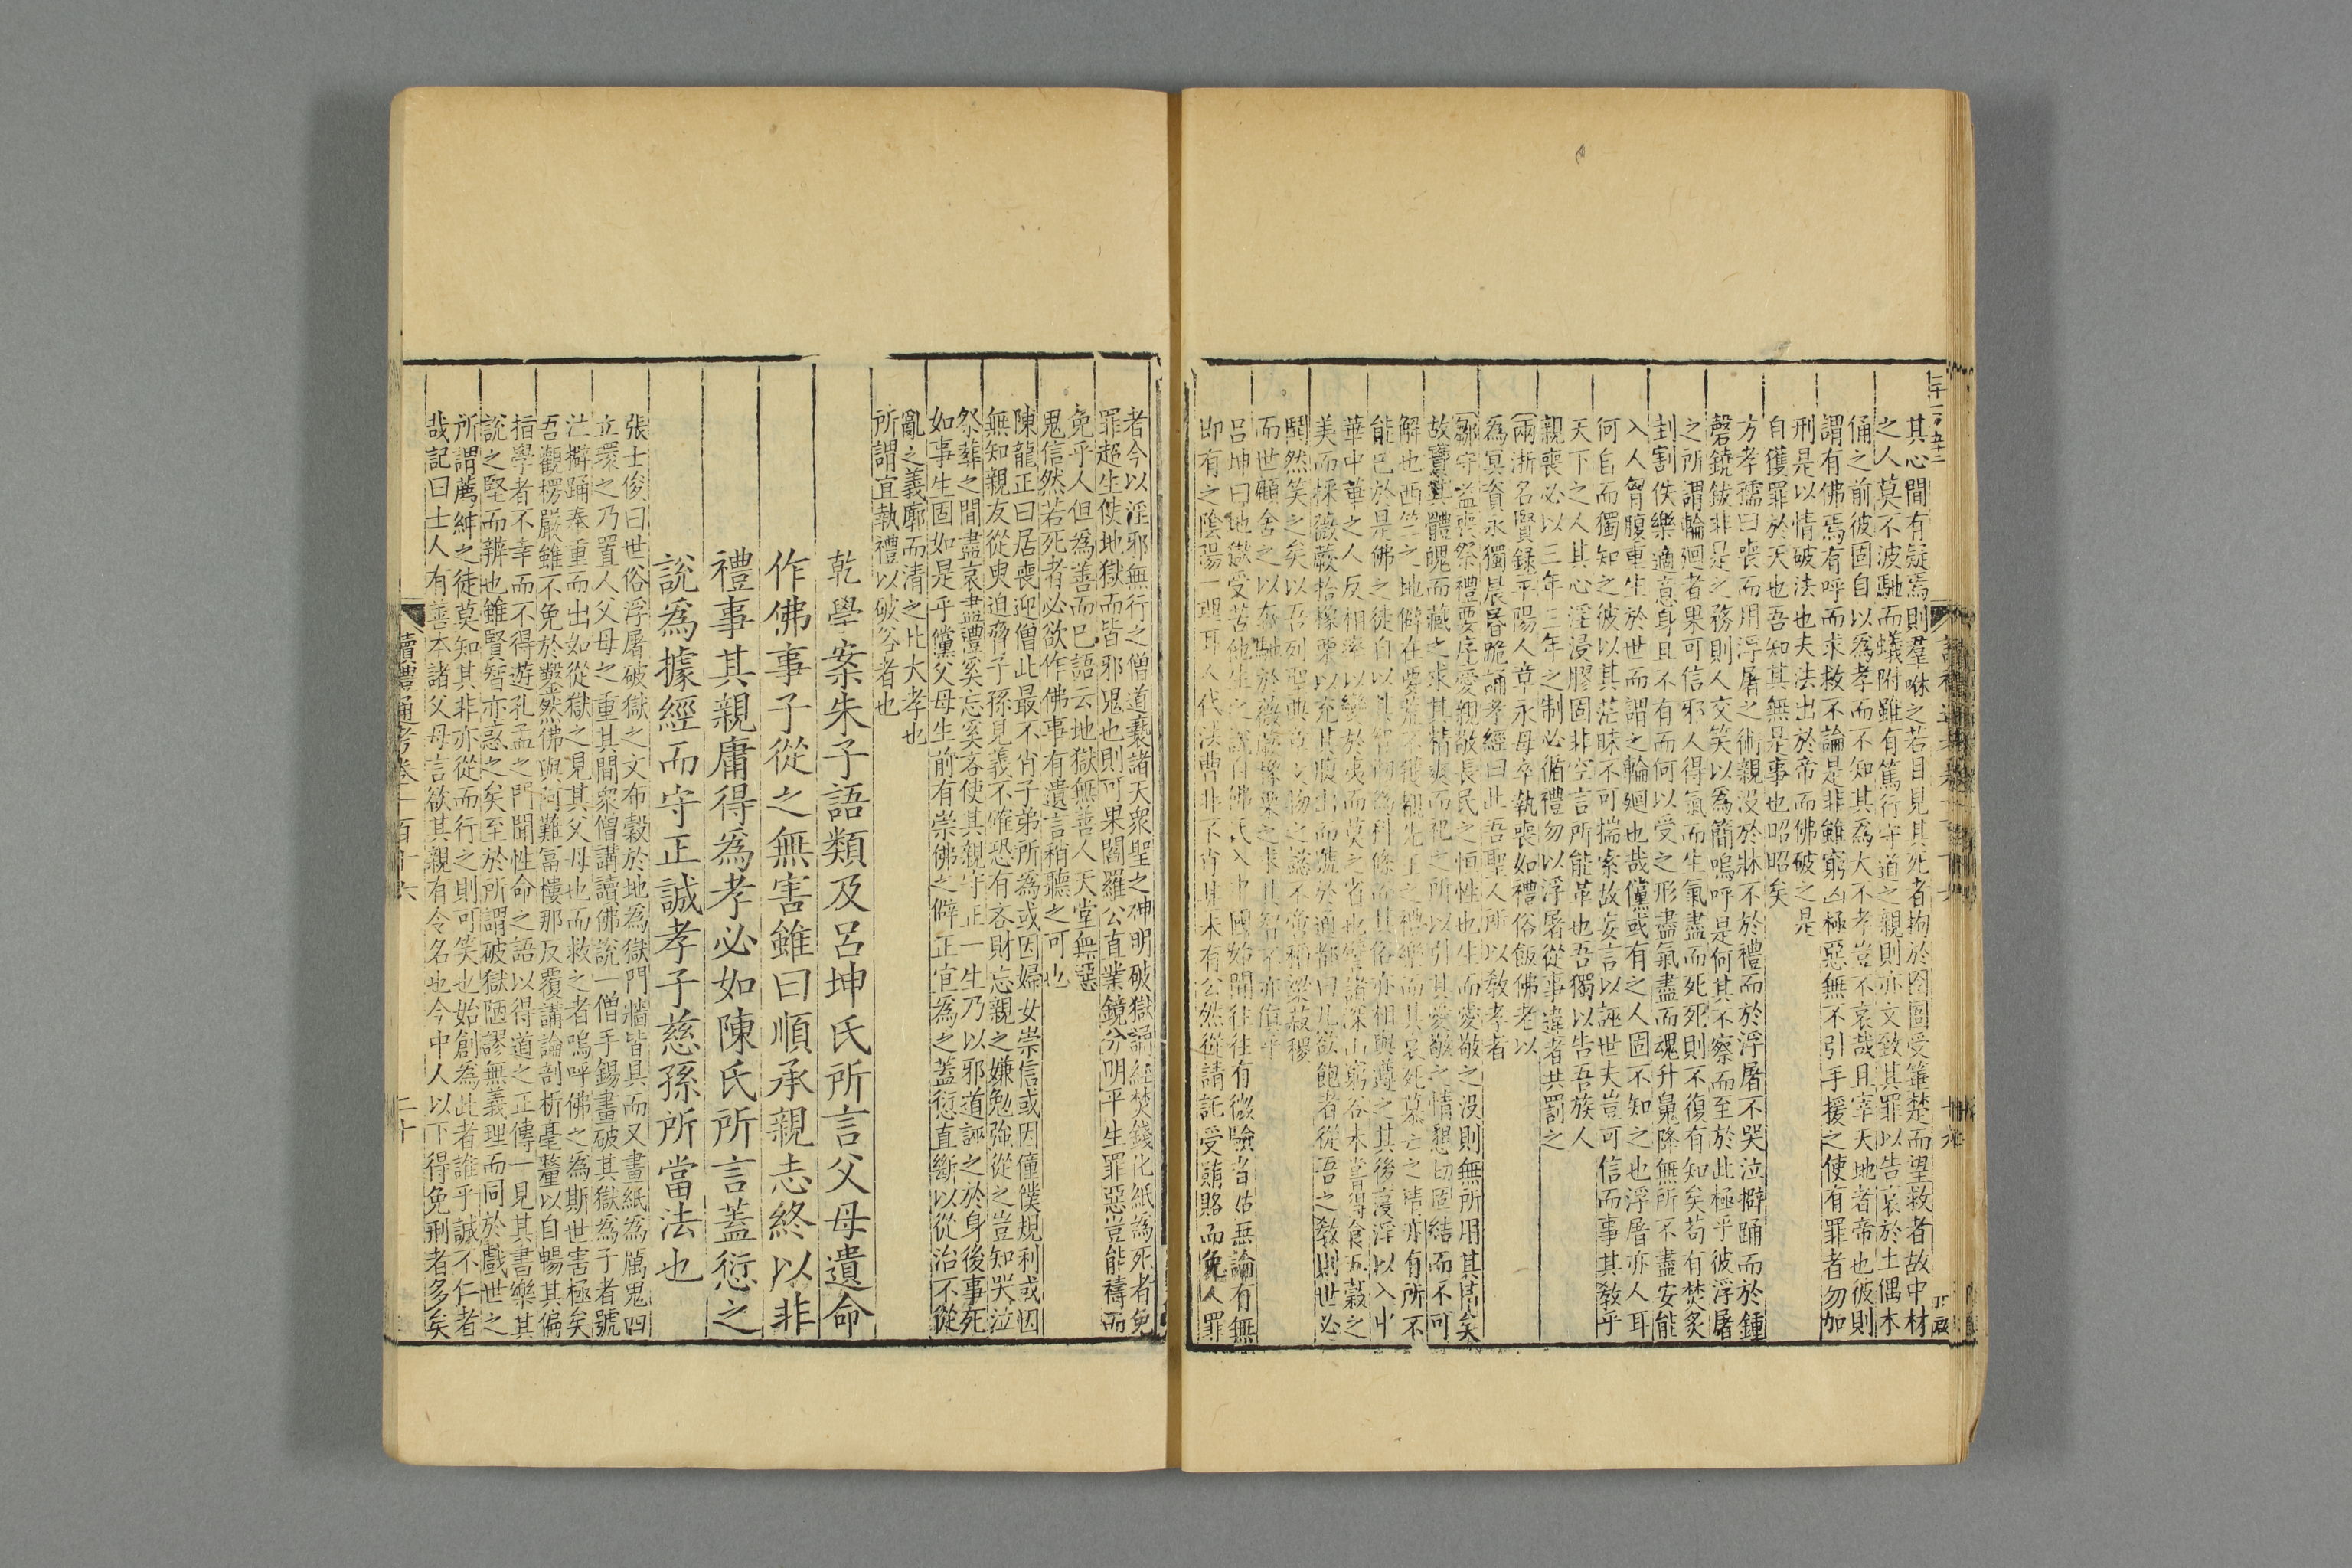 其心間有疑焉則羣咻之若目見其死者拘於囹圄受箠楚而望救者故中材
之人莫不波馳而蟻附雖有篤行守道之親則亦文致其罪以告哀於土偶木
俑之前彼固自以為孝而不知其為大不孝豈不哀哉且宰天地者帝也彼則
謂有佛焉有呼而求救不論是非雖窮凶極惡無不引手援之使有罪者勿加
刑是以情破法也夫法出於帝而佛破之是
自獲罪於天也吾知其無是事也昭昭矣
方孝孺曰喪而用浮屠之術親没於牀不於禮而於浮屠不哭泣擗踊而於鍾
磬鐃鈸非是之務則人交笑以為簡嗚呼是何其不察而至於此極乎彼浮屠
之所謂輪廻者果可信邪人得氣而生氣盡而死死則不復有知矣苟有焚炙
刲割佚樂適意身且不有而何以受之形盡氣盡而魂升魄降無所不盡安能
入人胷腹重生於世而謂之輪廻也哉儻或有之人固不知之也浮屠亦人耳
何自而獨知之彼以其茫昧不可揣索故妄言以誣世夫豈可信而事其敎乎
天下之人其心淫浸膠固非空言所能革也吾獨以告吾族人
親喪必以三年三年之制必循禮勿以浮屠從事違者共罰之
兩浙名賢錄平陽人章永母卒執喪如禮俗飯佛老以
為冥資永獨晨昏跪誦孝經曰此吾聖人所以敎孝者
鄒守益喪祭禮要序愛親敬長民之恒性也生而愛敬之没則無所用其情矣
故實其體魄而藏之求其精爽而祀之所以引其愛敬之情懇切固結而不可
解也西竺之地僻在要荒不獲覩先王之禮樂而其哀死慕亡之情亦有所不
能已於是佛之徒自以其智制為科條而其俗亦相與遵之其後寖浮以入中
華中華之人反相率以變於夷而莫之省也譬諸深山窮谷未嘗得食五穀之
美而採薇蕨拾橡栗以充其腹出而號於通都曰凡欲飽者從吾之敎則世必
鬨然笑之矣以吾列聖典章文物之懿不啻稻粱菽稷
而世顧舍之以奔馳於薇蕨橡栗之求其智不亦傎乎
呂坤曰地獄受苦他生之說自佛氏入中國始聞往往有徵驗者姑無論有無
卽有之陰陽一理耳人代法曹非不肖甚未有公然從請託受賄賂而免人罪
者今以淫邪無行之僧道褻諸天衆聖之神明破獄誦經焚錢化紙為死者免
罪超生使地獄而皆邪鬼也則可果閻羅公直業鏡分明平生罪惡豈能禱而
免乎人但為善而已語云地獄無善人天堂無惡
鬼信然若死者必欲作佛事有遺言稍聽之可也
陳龍正曰居喪迎僧此最不肖子弟所為或因婦女崇信或因僮僕規利或因
無知親友從臾迫脅子孫見義不確恐有吝財忘親之嫌勉強從之豈知哭泣
祭葬之間盡哀盡禮奚忘奚吝使其親守正一生乃以邪道誣之於身後事死
如事生固如是乎儻父母生前有崇佛之僻正宜為之蓋愆直斷以從治不從
亂之義廓而清之比大孝也
所謂宜執禮以破咎者也
乾學案朱子語類及呂坤氏所言父母遺命
作佛事子從之無害雖曰順承親志終以非
禮事其親庸得爲孝必如陳氏所言蓋愆之
說爲據經而守正誠孝子慈孫所當法也
張士俊曰世俗浮屠破獄之文布穀於地爲獄門牆皆具而又畫紙爲厲鬼四
立環之乃置人父母之重其間衆僧講讀佛說一僧手錫畫破其獄爲子者號
泣擗踊奉重而出如從獄之見其父母也而救之者嗚呼佛之爲斯世害極矣
吾觀楞嚴雖不免於鑿然佛與阿難富樓那反覆講論剖析毫釐以自暢其偏
指學者不幸而不得遊孔孟之門聞性命之語以得道之正傳一見其書樂其
說之堅而辨也雖賢智亦惑之矣至於所謂破獄陋謬無義理而同於戲世之
所謂薦紳之徒莫知其非亦從而行之則可笑也始創為此者誰乎誠不仁者
哉記曰士人有善本諸父母言欲其親有令名也今中人以下得免刑者多矣
讀禮通考卷一百十六
二十